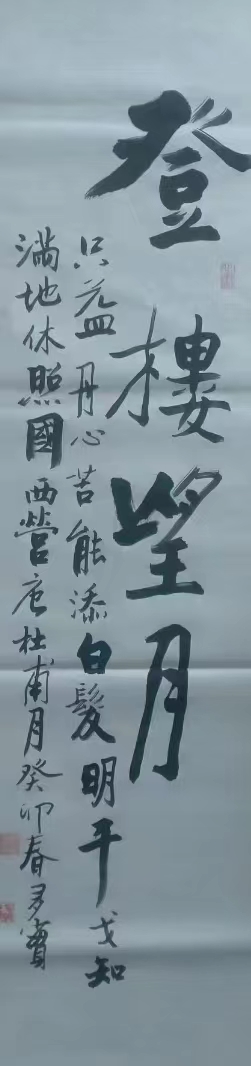 登樓望月
只益丹心苦能添白髮明干戈知
滿地休照國西營唐杜甫月癸卯春多寶